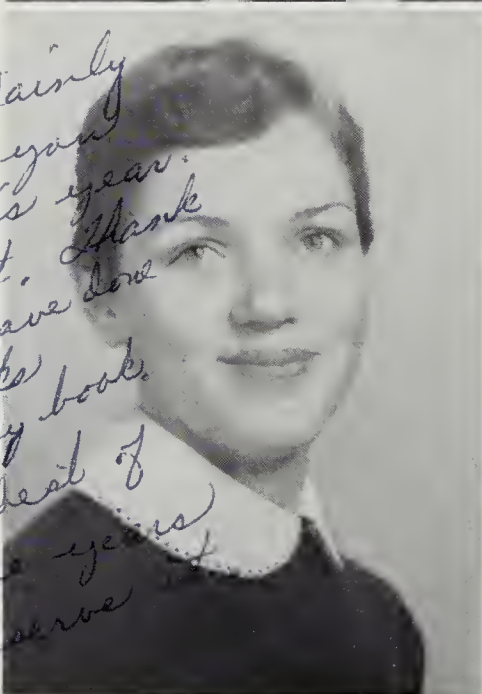 tainly
you
's year.
t. Thank
ave done
ks
y book.
best of
e years
serve it